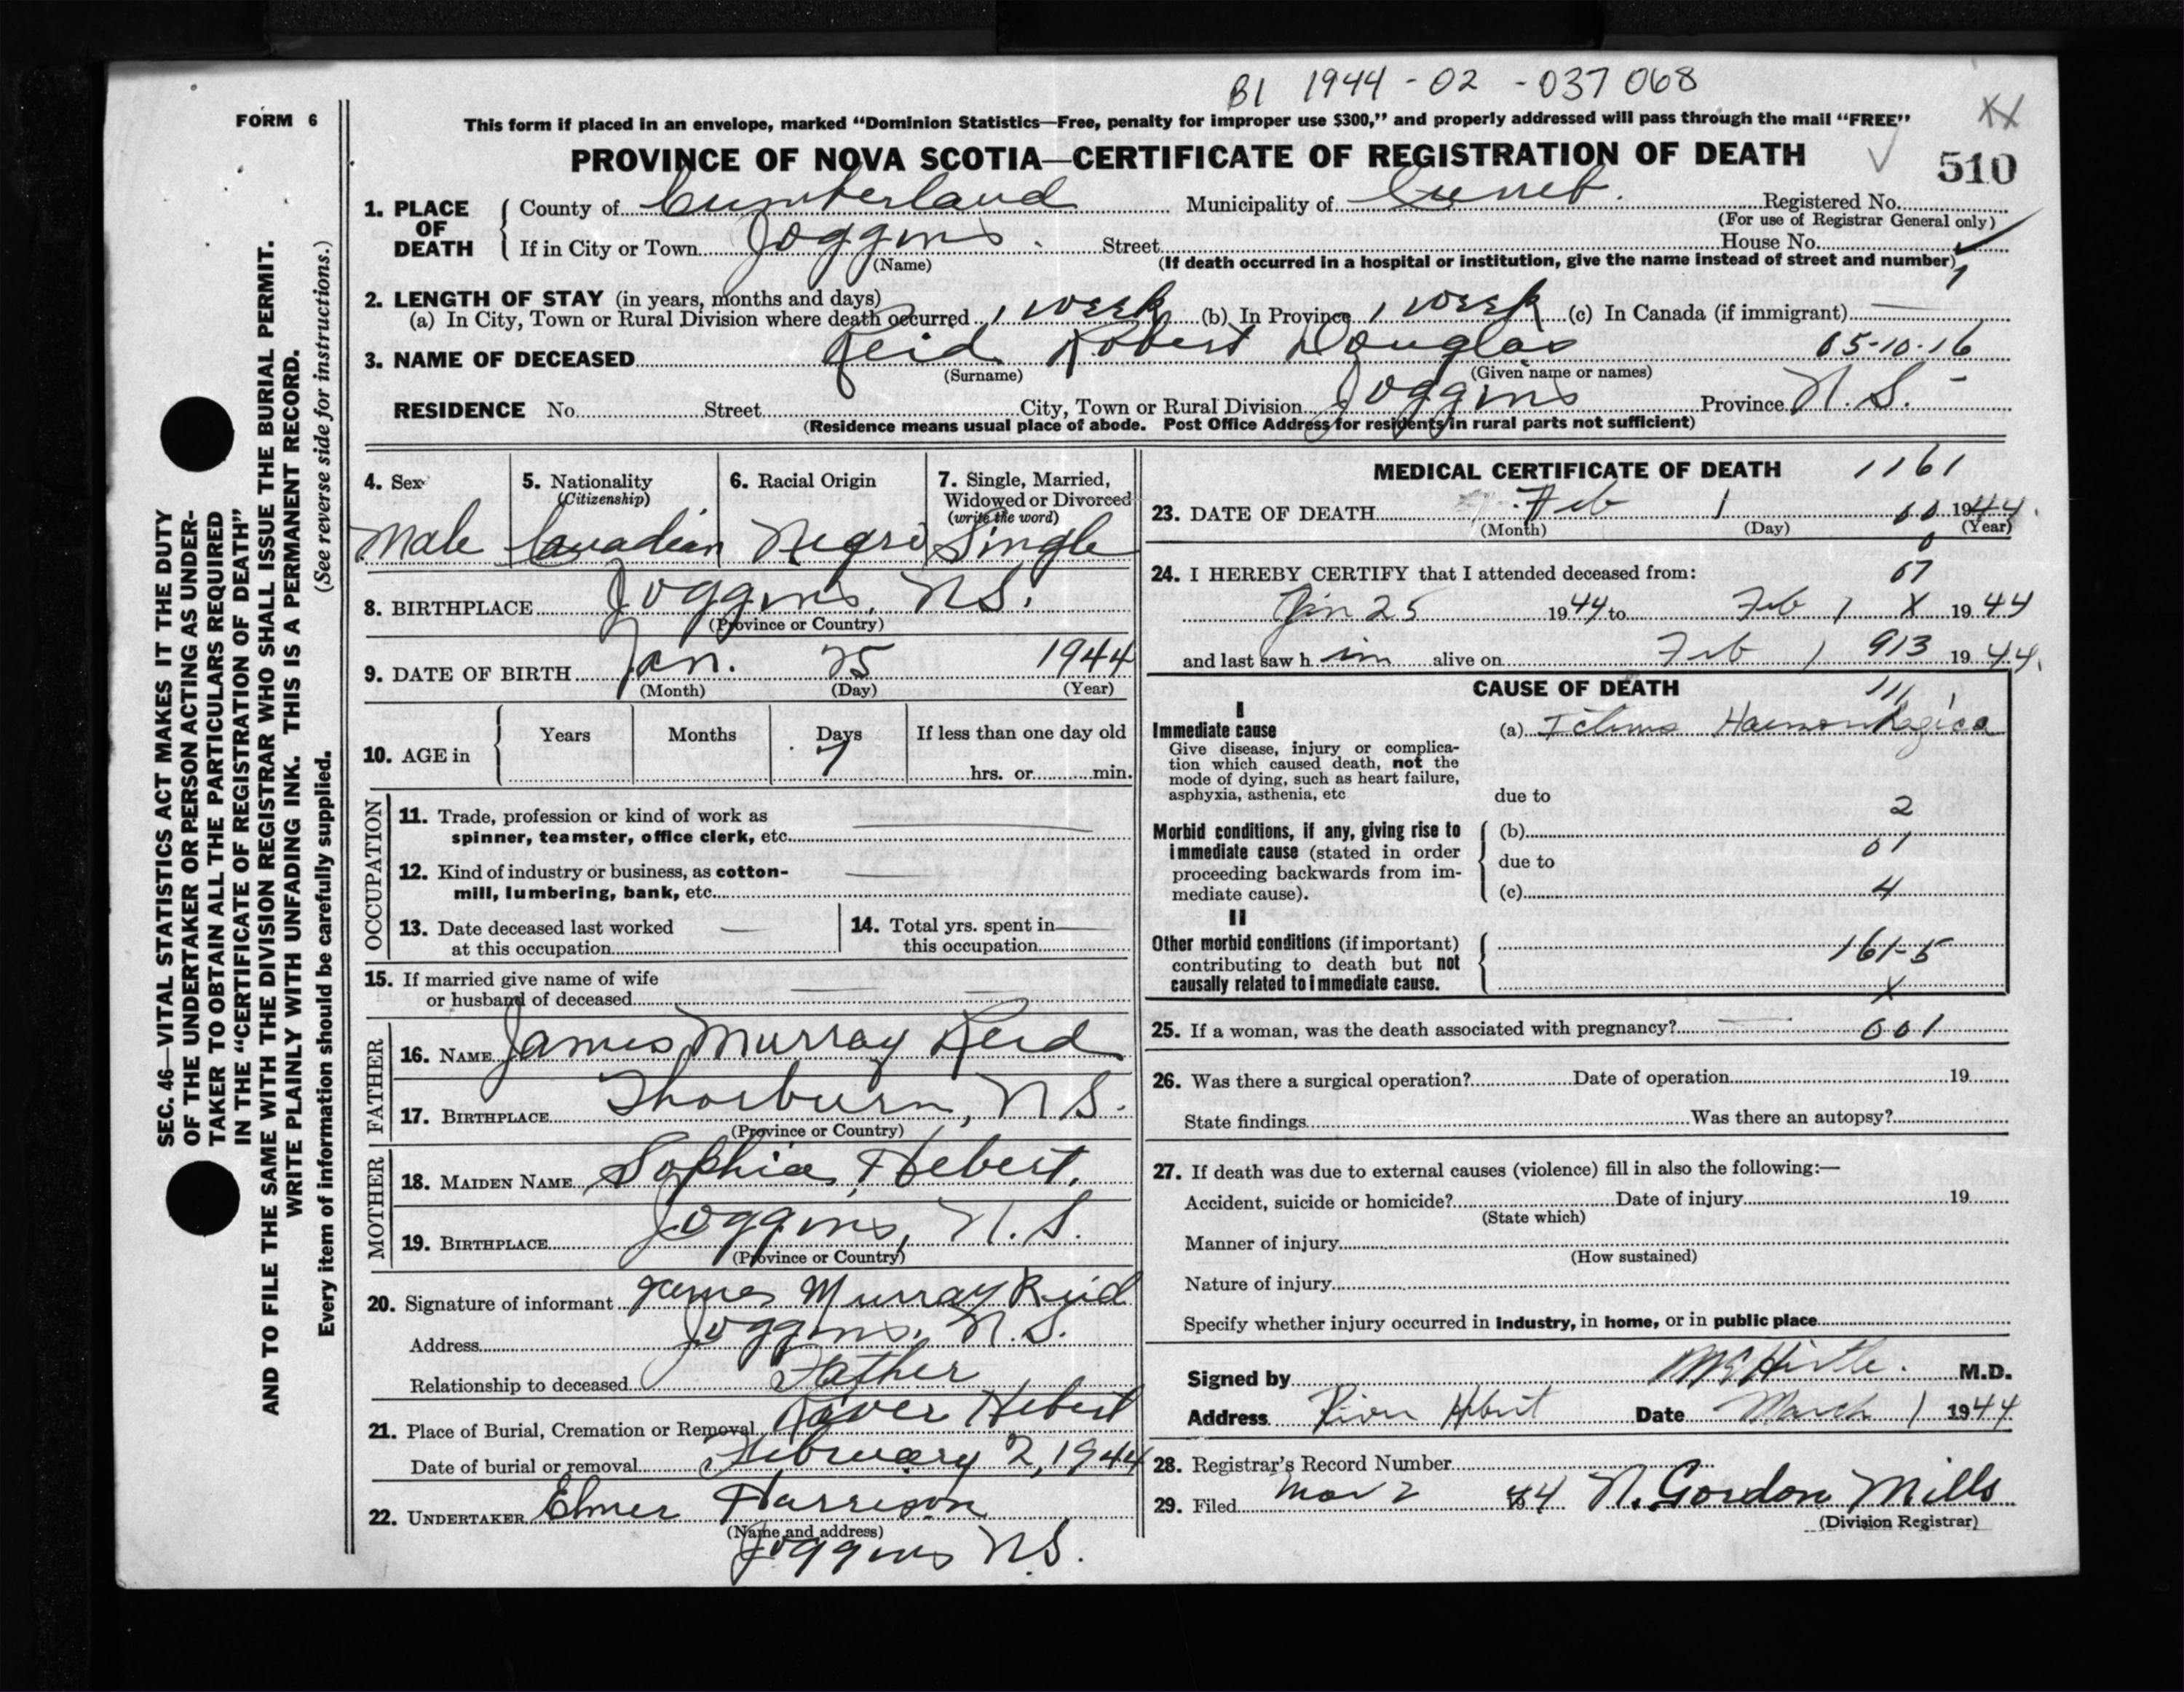 B1 1944-02-037068
XX
FORM 6
This form if placed in an envelope, marked “Dominion Statistics—Free, penalty for improper use $300,” and properly addressed will pass through the mail “FREE”
PROVINCE OF NOVA SCOTIA—CERTIFICATE OF REGISTRATION OF DEATH
510
1. PLACE OF DEATH
County of Cumberland Municipality of Registered No.
(For use of Registrar General only)
If in City or Town Joggins Street House No.
(Name) (If death occurred in a hospital or institution, give the name instead of street and number)
2. LENGTH OF STAY (in years, months and days)
(a) In City, Town or Rural Division where death occurred 1 week (b) In Province 1 week (c) In Canada (if immigrant)
3. NAME OF DECEASED Reid Robert Douglas 05-10-16
(Surname) (Given name or names)
RESIDENCE No. Street City, Town or Rural Division Joggins Province N.S.
(Residence means usual place of abode. Post Office Address for residents in rural parts not sufficient)
4. Sex
Male
5. Nationality
(Citizenship)
Canadian
6. Racial Origin
Negro
7. Single, Married,
Widowed or Divorced
(write the word)
Single
8. BIRTHPLACE Joggins, N.S.
(Province or Country)
9. DATE OF BIRTH Jan. 25 1944
(Month) (Day) (Year)
10. AGE in
Years Months Days If less than one day old
7 hrs. or min.
OCCUPATION
11. Trade, profession or kind of work as
spinner, teamster, office clerk, etc.
12. Kind of industry or business, as cotton-
mill, lumbering, bank, etc.
13. Date deceased last worked
at this occupation
14. Total yrs. spent in
this occupation
15. If married give name of wife
or husband of deceased
FATHER
16. NAME James Murray Reid
17. BIRTHPLACE Thorburn, N.S.
(Province or Country)
MOTHER
18. MAIDEN NAME Sophia Hebert.
19. BIRTHPLACE Joggins, N.S.
(Province or Country)
20. Signature of informant James Murray Reid
Address Joggins, N.S.
Relationship to deceased Father
21. Place of Burial, Cremation or Removal River Hebert
Date of burial or removal February 2, 1944
22. UNDERTAKER Elmer Harrison
(Name and address)
Joggins N.S.
MEDICAL CERTIFICATE OF DEATH 1161
23. DATE OF DEATH Feb 1 1944
(Month) (Day) (Year)
24. I HEREBY CERTIFY that I attended deceased from: 07
Jan 25 1944 to Feb 1 X 1944
and last saw him alive on Feb 1 913 1944.
CAUSE OF DEATH
I
Immediate cause
Give disease, injury or complica-
tion which caused death, not the
mode of dying, such as heart failure,
asphyxia, asthenia, etc
(a) Haemorrhagica
due to
2
Morbid conditions, if any, giving rise to
immediate cause (stated in order
proceeding backwards from im-
mediate cause).
(b)
01
due to
(c) 4
II
Other morbid conditions (if important)
contributing to death but not
causally related to immediate cause.
161-5
X
25. If a woman, was the death associated with pregnancy? 001
26. Was there a surgical operation? Date of operation 19
State findings Was there an autopsy?
27. If death was due to external causes (violence) fill in also the following:—
Accident, suicide or homicide? Date of injury 19
(State which)
Manner of injury
(How sustained)
Nature of injury
Specify whether injury occurred in Industry, in home, or in public place
Signed by Hirtle. M.D.
Address River Hebert Date March 1 1944
28. Registrar's Record Number
29. Filed Mar 2 44 N. Gordon Mills
(Division Registrar)
SEC. 46—VITAL STATISTICS ACT MAKES IT THE DUTY
OF THE UNDERTAKER OR PERSON ACTING AS UNDER-
TAKER TO OBTAIN ALL THE PARTICULARS REQUIRED
IN THE “CERTIFICATE OF REGISTRATION OF DEATH”
AND TO FILE THE SAME WITH THE DIVISION REGISTRAR WHO SHALL ISSUE THE BURIAL PERMIT.
WRITE PLAINLY WITH UNFADING INK. THIS IS A PERMANENT RECORD.
Every item of information should be carefully supplied. (See reverse side for instructions.)